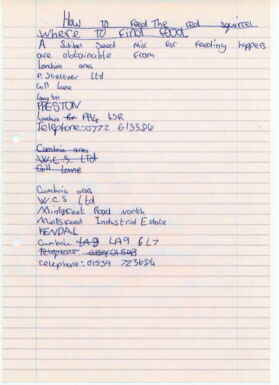 How to feed The red squirrel
Where to find food
A Suitable Seed mix for feeding hoppers
are obtainable from
London area
P. Shelever Ltd
Gill Lane
Longton
PRESTON
London PR4 4SR
Telephone: 0772 613586
Cumbria area
W.C.S. Ltd
Gill Lane
Cumbria area
W.C.S Ltd
Mintsfeet Road north
Mintsfeet Industrial Estate
KENDAL
Cumbria LA9 LA9 6L7
Telephone
telephone: 01539 723686